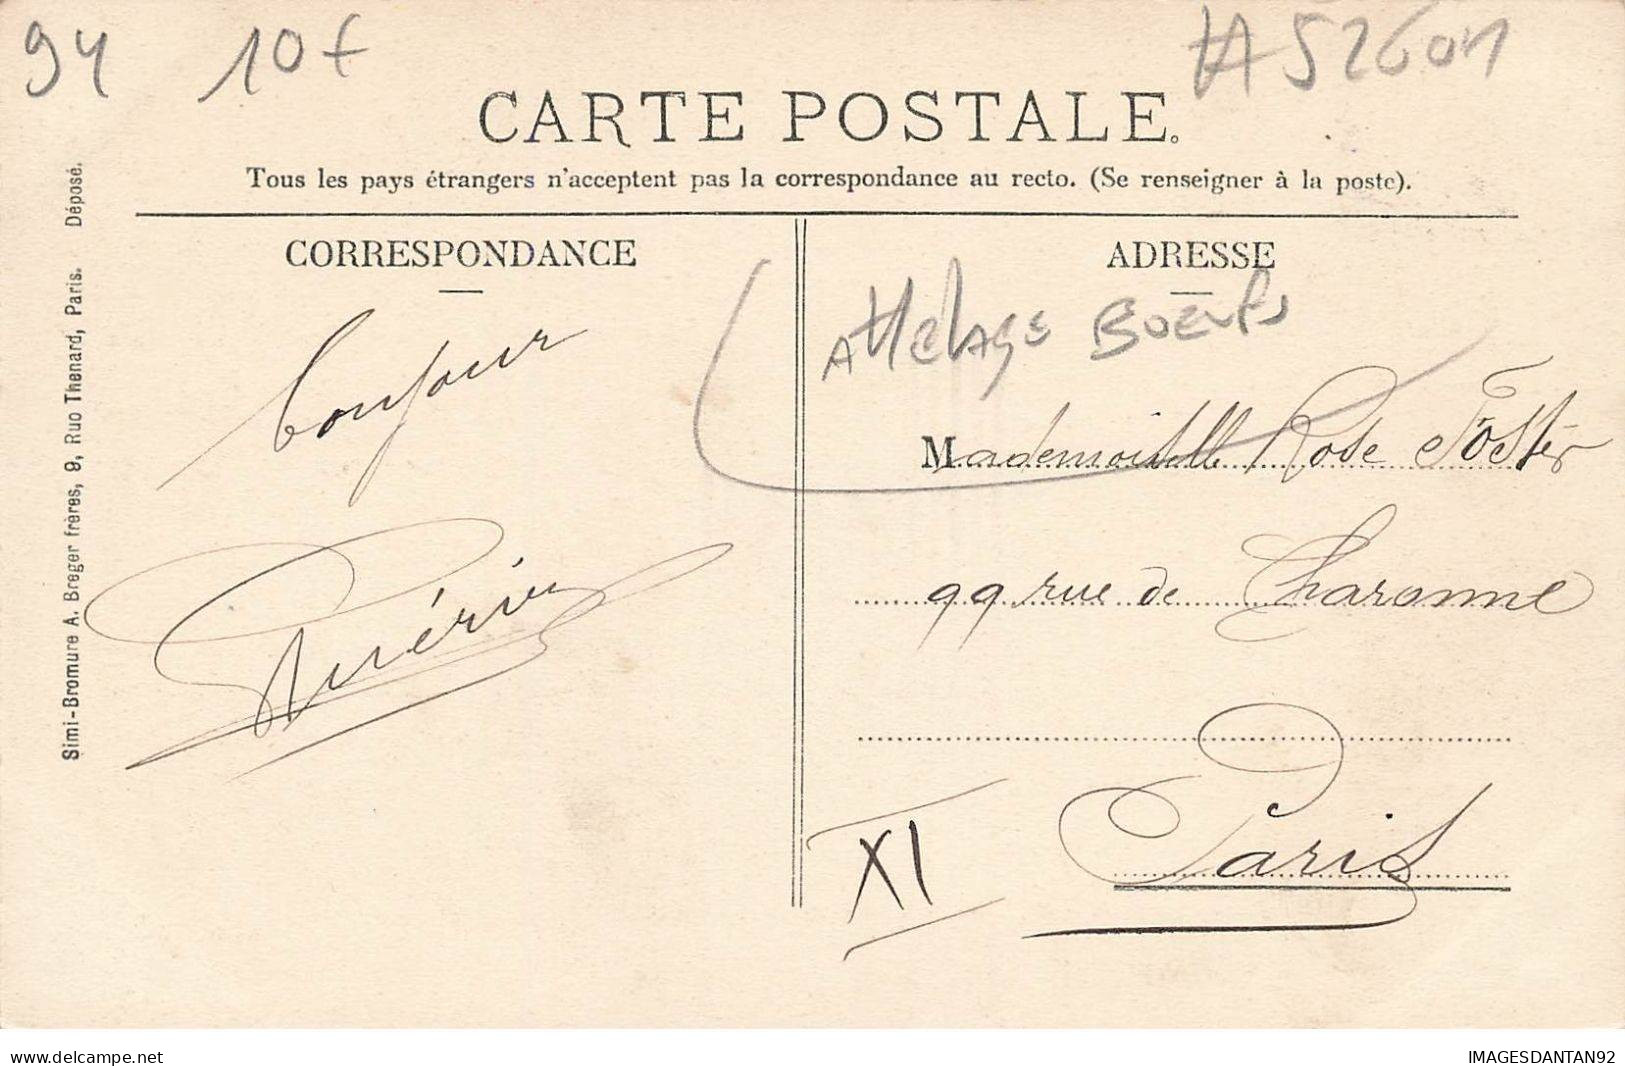 94 10f #A52601
CARTE POSTALE.
Tous les pays étrangers n'acceptent pas la correspondance au recto. (Se renseigner à la poste).
CORRESPONDANCE
bonjour
ADRESSE
Attelage Boeufs
Mademoiselle Rose Foster
99 rue de Charonne
Paris
XI
Simi-Bromure A. Breger frères, 9, Rue Thenard, Paris. Déposé.
www.delcampe.net
IMAGESDANTAN92